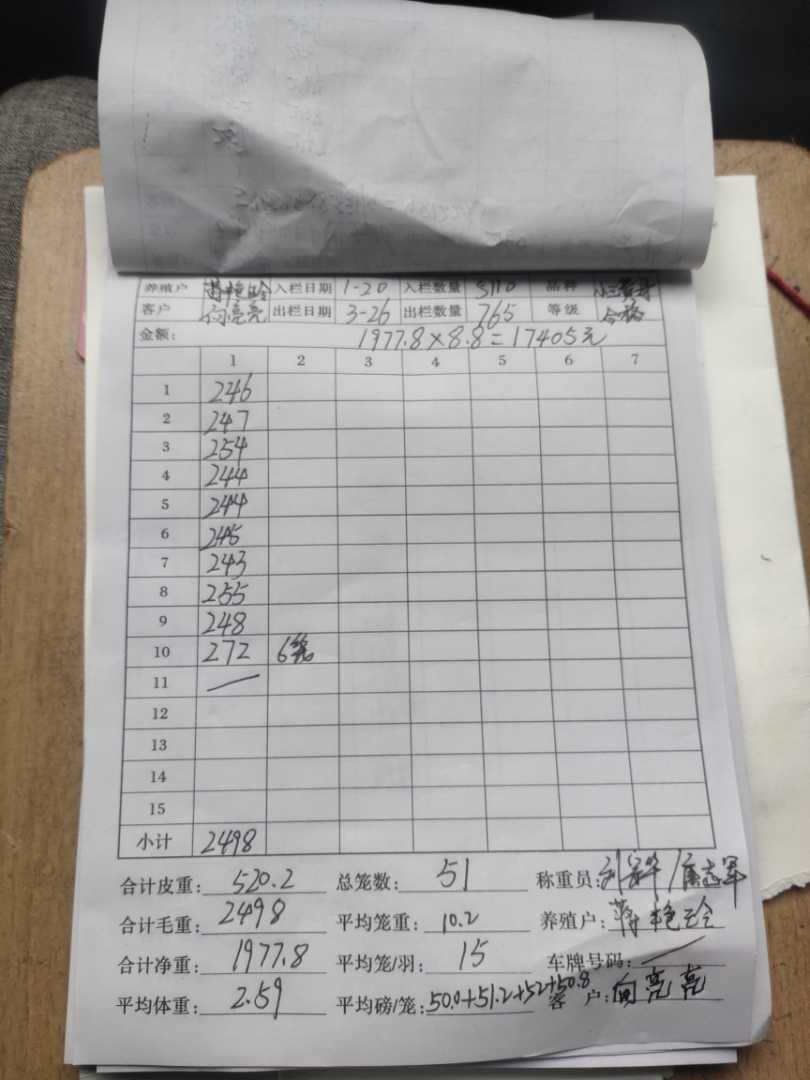 养殖户 蒋艳玲 入栏日期 1-20 入栏数量 5110 品种
客户 向亮亮 出栏日期 3-26 出栏数量 765 等级 合格
金额: 1977.8×8.8=17405元
1 2 3 4 5 6 7
1 246
2 247
3 254
4 244
5 244
6 245
7 243
8 255
9 248
10 272 6笼
11
12
13
14
15
小计 2498
合计皮重: 520.2 总笼数: 51 称重员:
合计毛重: 2498 平均笼重: 10.2 养殖户: 蒋艳玲
合计净重: 1977.8 平均笼/羽: 15 车牌号码:
平均体重: 2.59 平均磅/笼: 50.0+51.2+52+50.8 客户: 向亮亮